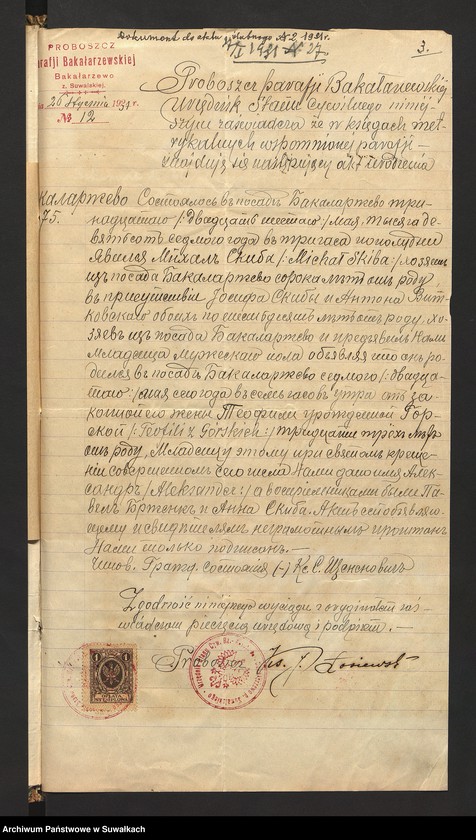 Dokument do aktu ślubnego № 2 1931 r.
VI 1931 № 27.
3.
PROBOSZCZ
Parafji Bakałarzewskiej
Bakałarzewo
z. Suwalskiej.
dnia 20 stycznia 1931
№ 12
Proboszcz parafji Bakałarzewskiej
Urzędnik Stanu Cywilnego niniej-
szym zaświadcza że w księgach met-
rykalnych wspomnianej parafji
znajduje się następujący akt urodzenia
Бакаларжево Состоялось въ посадѣ Бакаларжево три-
75.
надцатаго /:двадцать шестаго:/ мая, тысяча де-
вятьсотъ седмого года въ три часа пополудни
Явился Михалъ Скиба /:Michał Skiba:/ хозяинъ
изъ посада Бакаларжево сорока лѣтъ отъ роду,
въ присутствіи Іосифа Скибы и Антона Вит-
ковскаго обоихъ по лѣтъ отъ роду, хо-
зяевъ изъ посада Бакаларжево и предъявилъ Намъ
младенца мужескаго пола объявляя что онъ ро-
дился въ посадѣ Бакаларжево седмого /:двадца-
таго:/ мая сего года въ семь часовъ утра отъ за-
конной его жены Теофили урожденной Гор-
ской /:Teofili z Górskich:/ тридцати трёхъ лѣтъ
отъ роду, Младенцу этому при святомъ креще-
ніи совершенномъ сего числа Нами дано имя Алек-
сандръ /:Aleksander:/ а воспріемниками были Па-
велъ и Анна Скиба. Актъ сей объявля-
ющему и свидѣтелямъ неграмотнымъ прочитанъ
Нами только подписанъ. —
Чинов. Гражд. Состоянія (-) Кс. С.
Zgodność niniejszego wyciągu z oryginałem zaś-
wiadczam pieczęcią urzędową i podpisem. —
Proboszcz Ks. P.
Archiwum Państwowe w Suwałkach